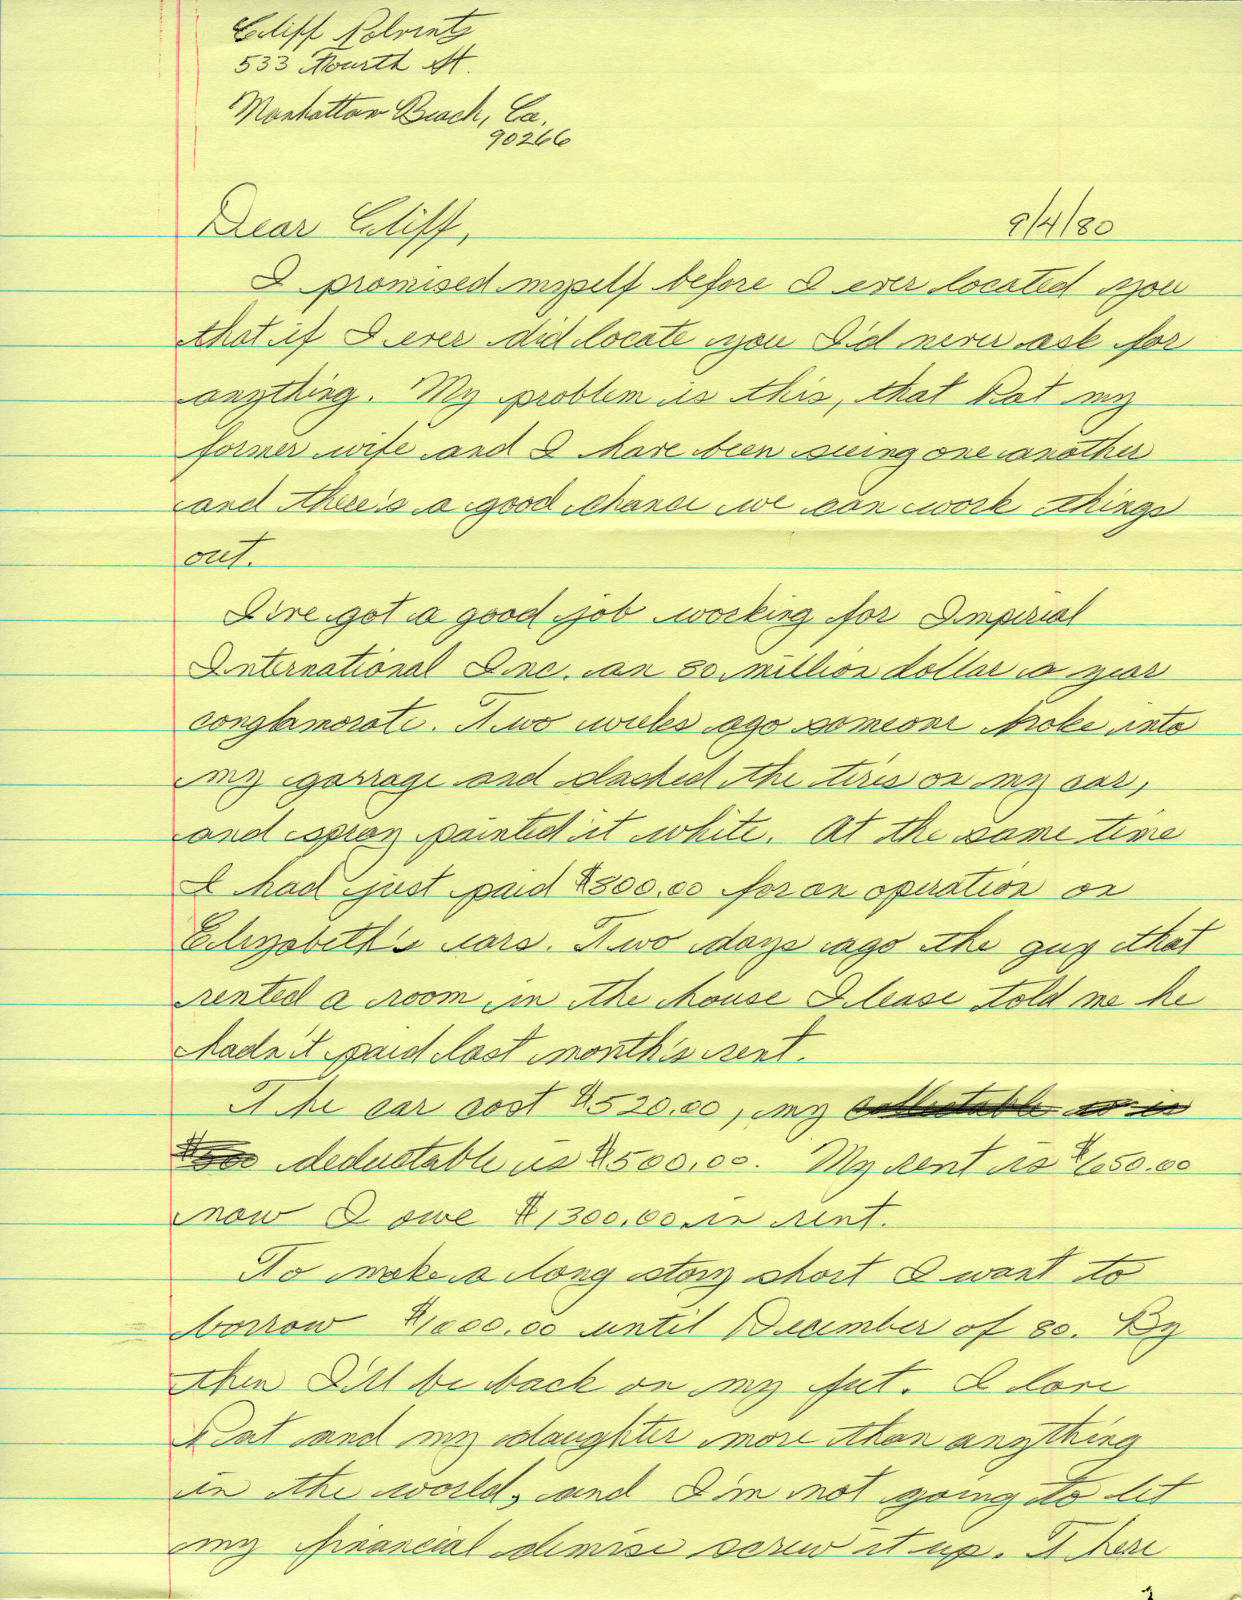 Cliff
533 Fourth St.
Manhattan Beach, Ca.
90266
Dear Cliff,
9/4/80
I promised myself before I ever located you
that if I ever did locate you I'd never ask for
anything. My problem is this, that Pat my
former wife and I have been seeing one another
and there's a good chance we can work things
out.
I've got a good job working for Imperial
International Inc. an 80 million dollar a year
conglamorate. Two weeks ago someone broke into
my garrage and slashed the tires on my car,
and spray painted it white. At the same time
I had just paid $800.00 for an operation on
Elizabeth's ears. Two days ago the guy that
rented a room in the house I lease told me he
hadn't paid last month's rent.
The car cost $520.00, my
deductable is $500.00. My rent is $650.00
now I owe $1300.00 in rent.
To make a long story short I want to
borrow $1000.00 until December of 80. By
then I'll be back on my feet. I love
Pat and my daughter more than anything
in the world, and I'm not going to let
my financial demise screw it up. There